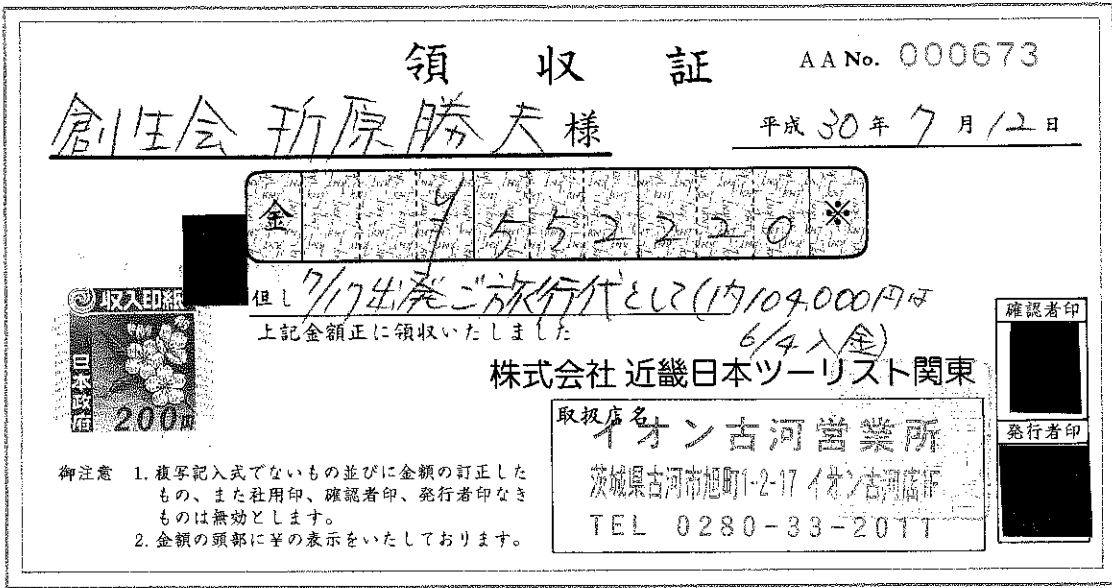 領収証
AA No. 000673
創生会 折原勝夫様
平成30年7月12日
金 ¥552220※
但し 7/17出発ご旅行代として(内104,000円は
6/4入金)
上記金額正に領収いたしました
収入印紙
日本政府
200円
株式会社 近畿日本ツーリスト関東
確認者印
発行者印
取扱店名
イオン古河営業所
茨城県古河市旭町1-2-17 イオン古河店1F
TEL 0280-33-2011
御注意 1. 複写記入式でないもの並びに金額の訂正した
もの、また社用印、確認者印、発行者印なき
ものは無効とします。
2. 金額の頭部に¥の表示をいたしております。